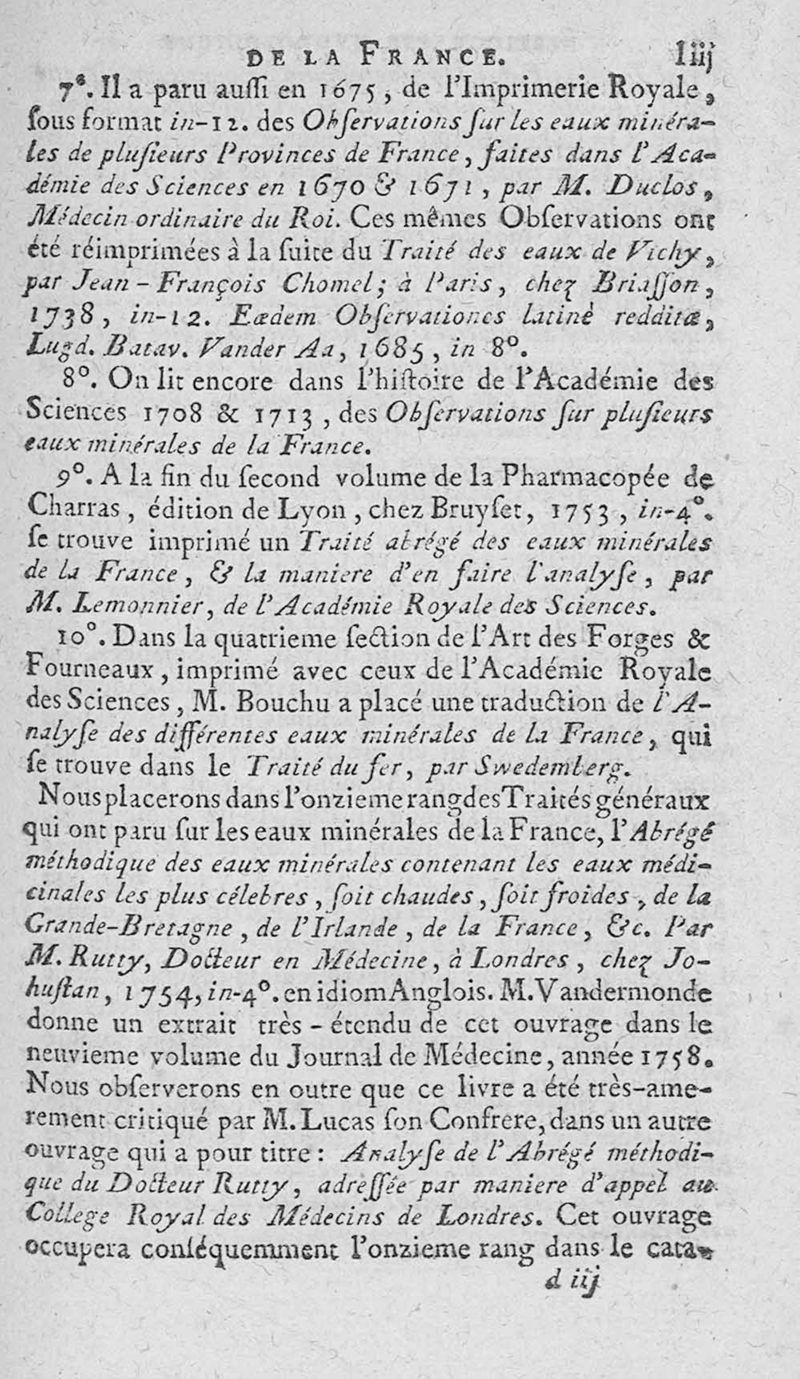 DE LA FRANCE. liij
7°. Il a paru auſſi en 1675, de l'Imprimerie Royale,
ſous format in-12. des Obſervations ſur les eaux minéra-
les de pluſieurs Provinces de France, faites dans l'Aca-
démie des Sciences en 1670 & 1671, par M. Duclos,
Médecin ordinaire du Roi. Ces mêmes Obſervations ont
été réimprimées à la ſuite du Traité des eaux de Vichy,
par Jean-François Chomel; à Paris, chez Briaſſon,
1738, in-12. Eædem Obſervationes latinè redditæ,
Lugd. Batav. Vander Aa, 1685, in 8°.
8°. On lit encore dans l'hiſtoire de l'Académie des
Sciences 1708 & 1713, des Obſervations ſur pluſieurs
eaux minérales de la France.
9°. A la fin du ſecond volume de la Pharmacopée de
Charras, édition de Lyon, chez Bruyſet, 1753, in-4°.
ſe trouve imprimé un Traité abrégé des eaux minérales
de la France, & la maniere d'en faire l'analyſe, par
M. Lemonnier, de l'Académie Royale des Sciences.
10°. Dans la quatrieme ſection de l'Art des Forges &
Fourneaux, imprimé avec ceux de l'Académie Royale
des Sciences, M. Bouchu a placé une traduction de l'A-
nalyſe des différentes eaux minérales de la France, qui
ſe trouve dans le Traité du fer, par Swedemberg.
Nous placerons dans l'onzieme rang des Traités généraux
qui ont paru ſur les eaux minérales de la France, l'Abrégé
méthodique des eaux minérales contenant les eaux médi-
cinales les plus célebres, ſoit chaudes, ſoit froides, de la
Grande-Bretagne, de l'Irlande, de la France, &c. Par
M. Rutty, Docteur en Médecine, à Londres, chez Jo-
huſtan, 1754, in-4°. en idiom Anglois. M. Vandermonde
donne un extrait très-étendu de cet ouvrage dans le
neuvieme volume du Journal de Médecine, année 1758.
Nous obſerverons en outre que ce livre a été très-ame-
rement critiqué par M. Lucas ſon Confrere, dans un autre
ouvrage qui a pour titre : Analyſe de l'Abrégé méthodi-
que du Docteur Rutty, adreſſée par maniere d'appel au
College Royal des Médecins de Londres. Cet ouvrage
occupera conſéquemment l'onzieme rang dans le cata-
d iij